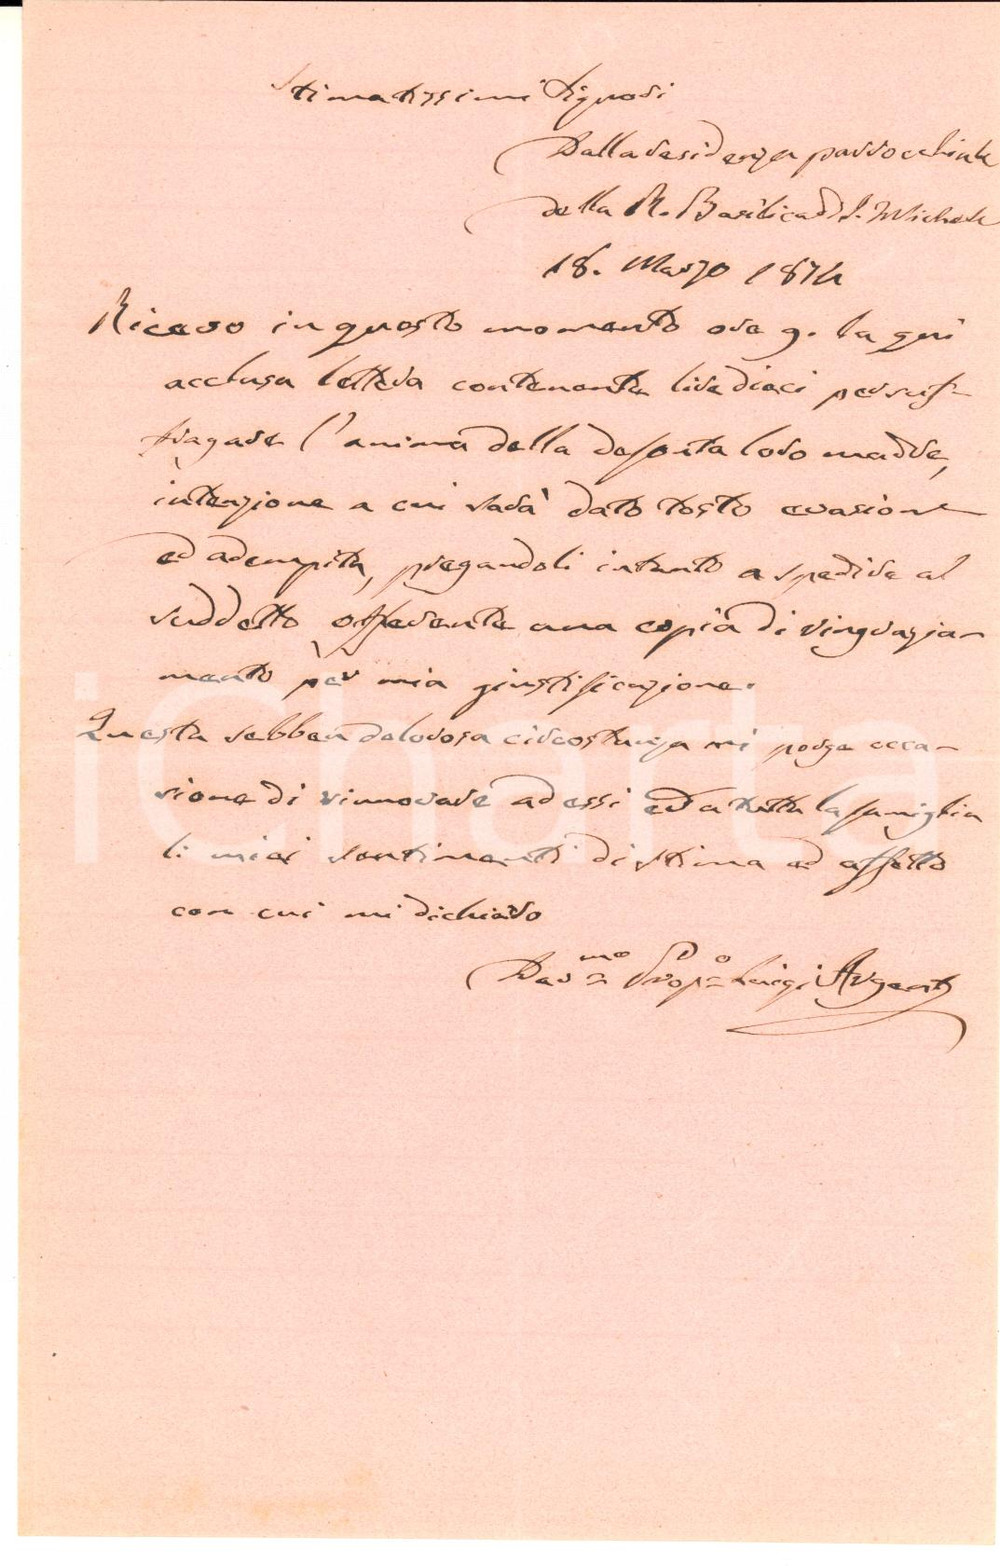 Stimatissimi Signori
Dalla residenza parrocchiale
della R. Basilica di S. Michele
18. Marzo 1874
Ricevo in questo momento ore 9. la qui
acclusa lettera contenente lire dieci per suf-
fragare l'anima della defonta loro madre,
intenzione a cui sarà dato tosto evasione
ed adempita, pregandoli intanto a spedire al
suddetto offerente una copia di ringrazia-
mento per mia giustificazione.
Questa sebben dolorosa circostanza mi porge occa-
sione di rinnovare ad essi ed a tutta la famiglia
li miei sentimenti di stima ed affetto
con cui mi dichiaro
Dev.mo Prop.o Luigi Argenti
iCharta